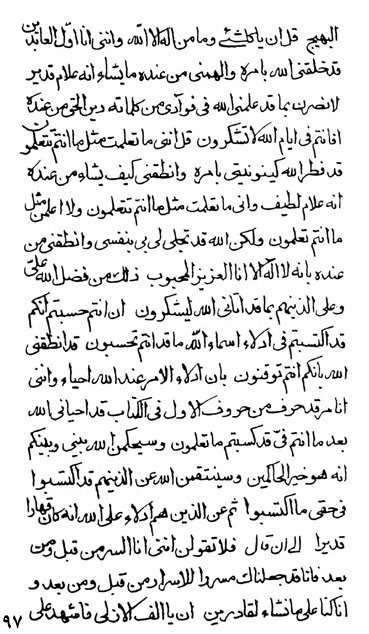 البهیج قل ان یا کلشیئ وما من اله الا الله واننی انا اول العابدین
قد خلقنی الله بامره والهمنی من عنده ما یشاء انه علام قدیر
لانصرن بما قد علمنی الله فی فوآدی من کلماته دین الحق من عنده
افانتم فی ایام الله لا تشکرون قل اننی ما تعلمت مثل ما انتم تتعلمون
قد فطر الله کینونیتی بامره وانطقنی کیف یشاء من عنده
انه علام لطیف وانی ما تعلمت مثل ما انتم تتعلمون ولا اعلمن مثل
ما انتم تعلمون ولکن الله قد تجلی لی بی بنفسی وانطقنی من
عنده بانه لا اله الا انا العزیز المحبوب ذلک من فضل الله علی
وعلی الذینهم بما قد آتانی الله لیشکرون ان انتم حسبتم انکم
قد اکتسبتم فی ادلاء اسماء الله ما قد انتم تحسبون قد انطقنی
الله بانکم انتم توقنون بان ادلاء الامر عند الله احیاء واننی
انا مرقد حرف من حروف الاول فی الکتاب قد احیانی الله
بعد ما انتم فی قد کسبتم ما تعلمون وسیحکمن الله بینی وبینکم
انه هو خیر الحاکمین وسینتقمن الله عن الذینهم قد اکتسبوا
فی حقی ما اکتسبوا ثم عن الذین هم ادلاء علی الله انه کان قهارا
قدیرا الی ان قال فلا تقولن اننی انا السر من قبل ومن
بعد فانا قد جعلناک مسررا للاسرار من قبل ومن بعد و
انا کنا علی ما نشاء لقادرین ان یا الف الازلی فاشهد علی
۹۷